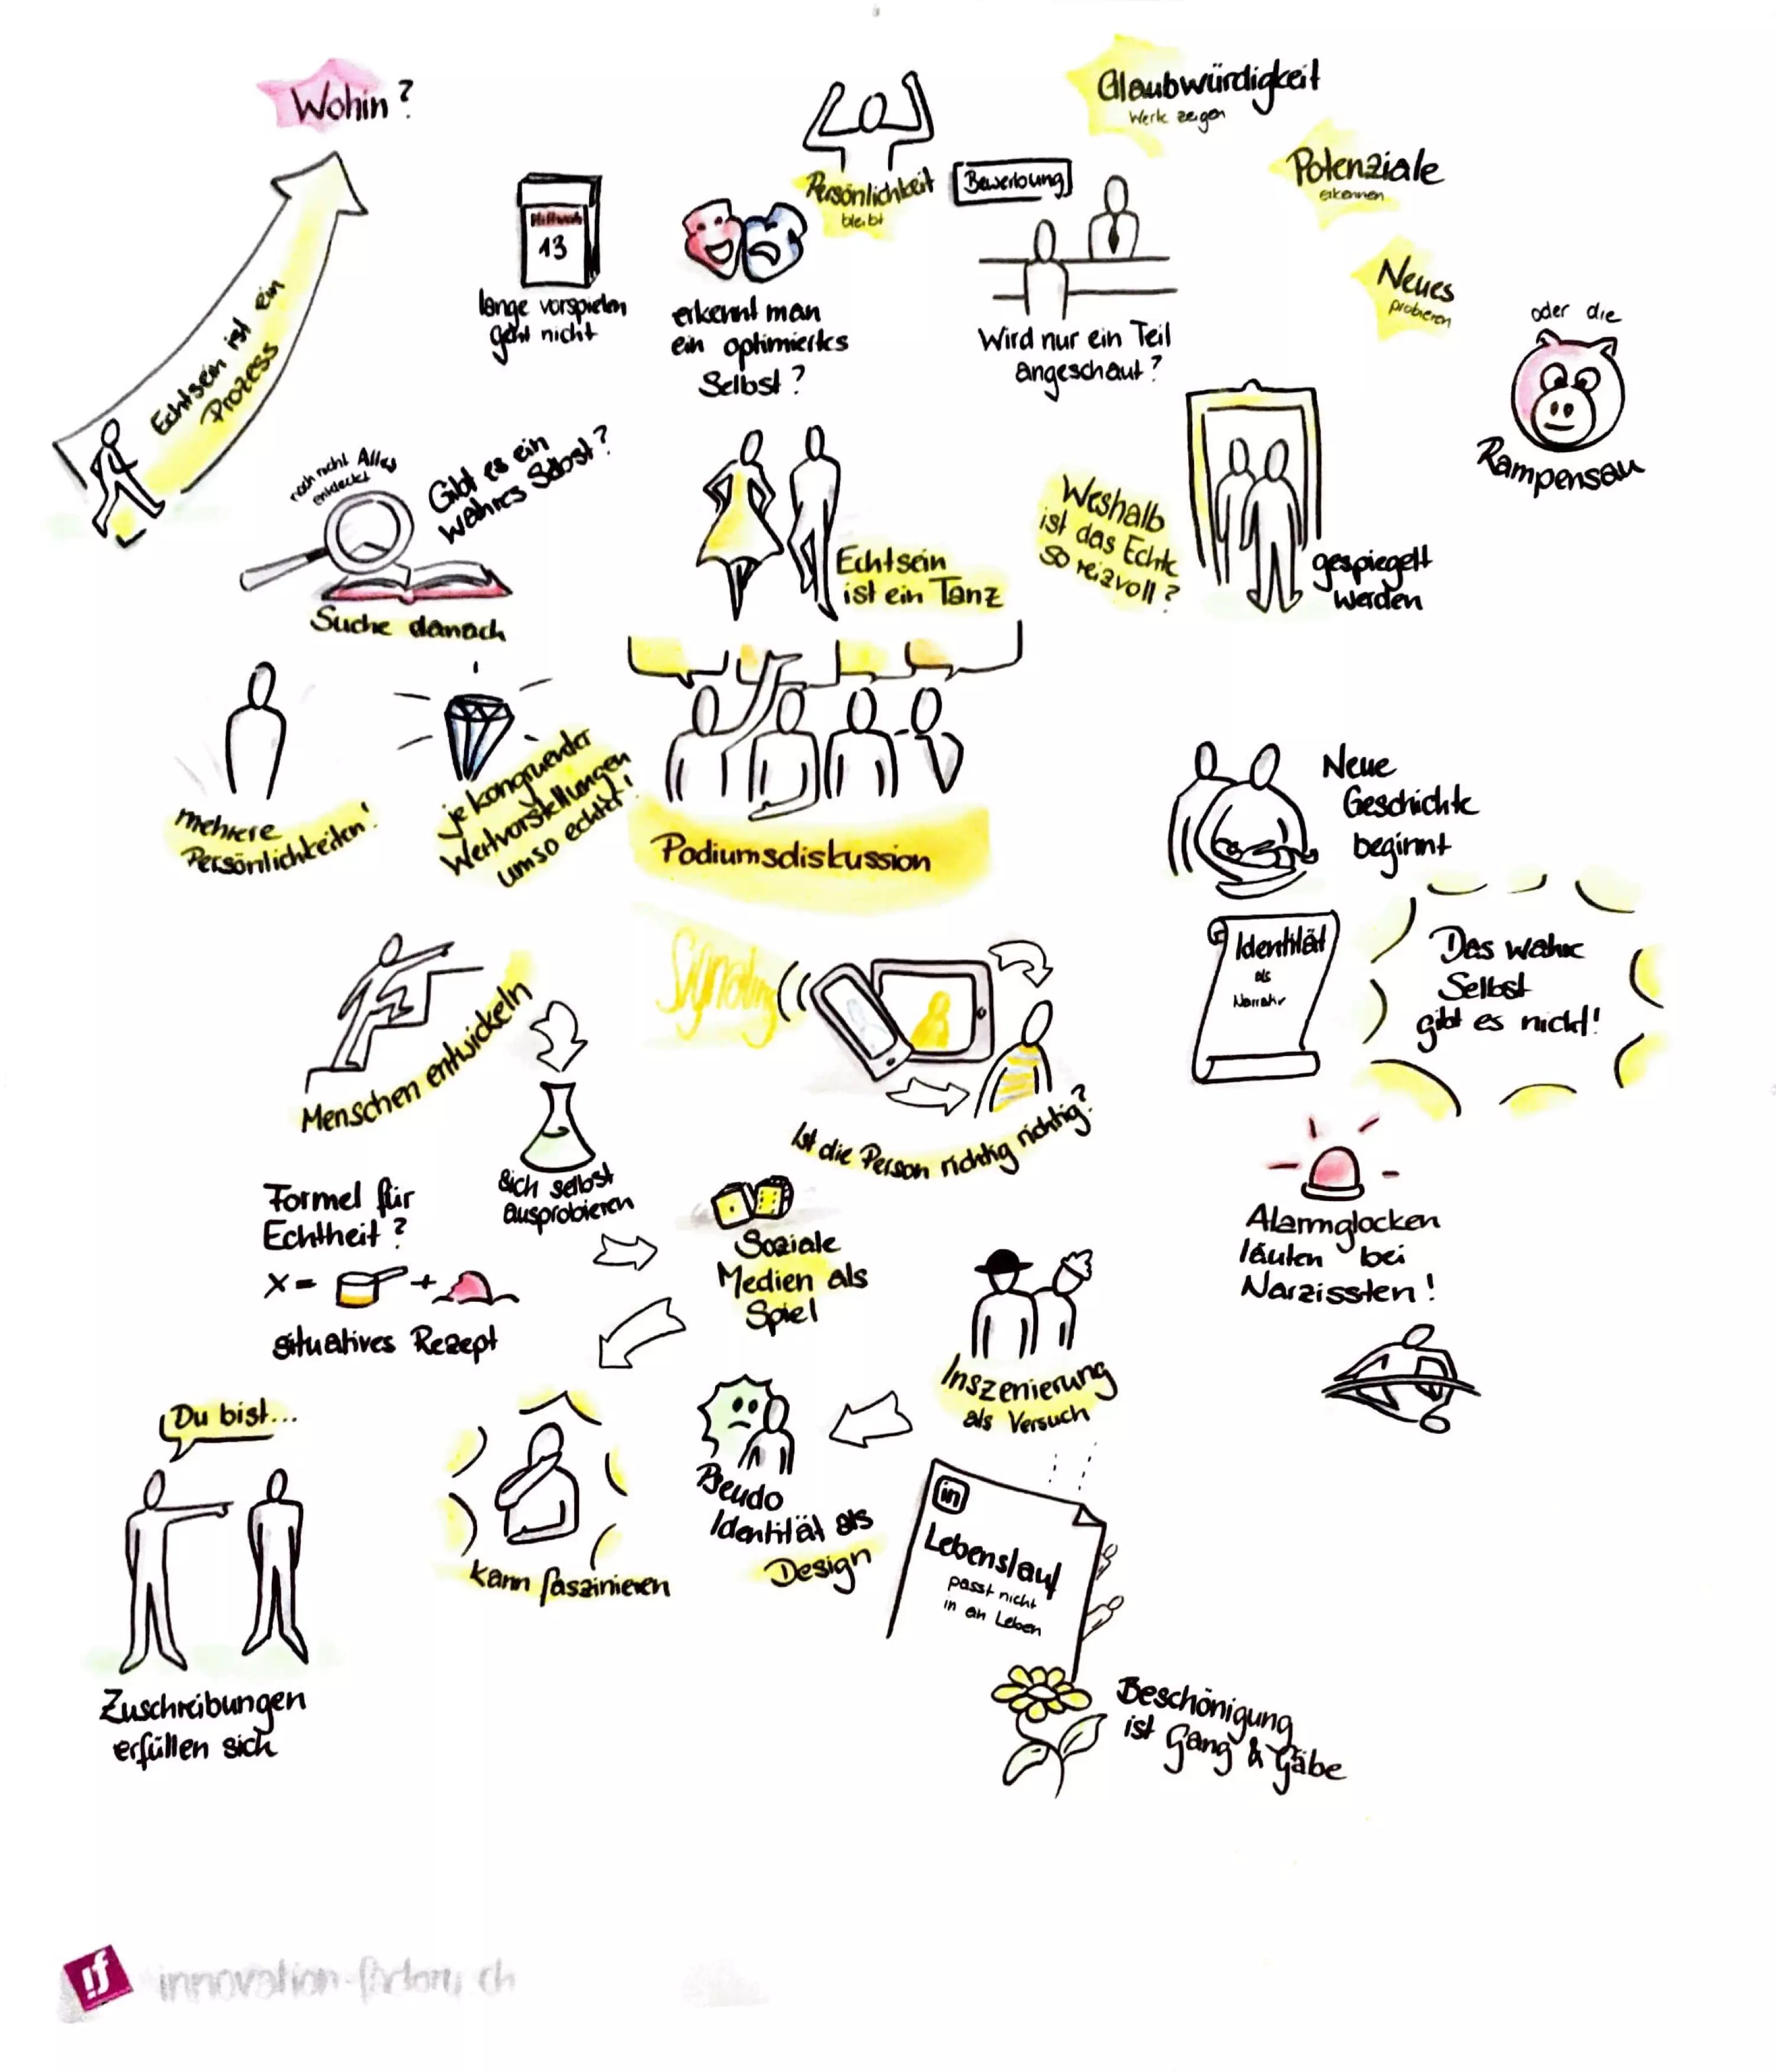 Wohin?
Echtsein ist ein
Prozess
Mittwoch
13
lange vorspielen
geht nicht
erkennt man
ein optimiertes
Selbst?
Persönlichkeit
bleibt
Bewerbung
Wird nur ein Teil
angeschaut?
Glaubwürdigkeit
Werk zeigen
Potenziale
erkennen
Neues
probieren
oder die
Rampensau
noch nicht Alles
entdeckt
Gibt es ein
wahres Selbst?
Suche danach
Echtsein
ist ein Tanz
Weshalb
ist das Echte
so reizvoll?
gespiegelt
werden
mehrere
Persönlichkeiten!
je kongruenter
Wertvorstellungen
umso echter!
Podiumsdiskussion
Neue
Geschichte
beginnt
Identität
als
Narrativ
Das wahre
Selbst
gibt es nicht!
Menschen entwickeln
sich selbst
ausprobieren
Ist die Person richtig richtig?
Formel für
Echtheit?
x = +
situatives Rezept
Soziale
Medien als
Spiel
Inszenierung
als Versuch
Alarmglocken
läuten bei
Narzissten!
Du bist...
Zuschreibungen
erfüllen sich
kann faszinieren
Pseudo
Identität als
Design
in
Lebenslauf
passt nicht
in ein Leben
Beschönigung
ist Gang & Gäbe
!f innovation-factory.ch